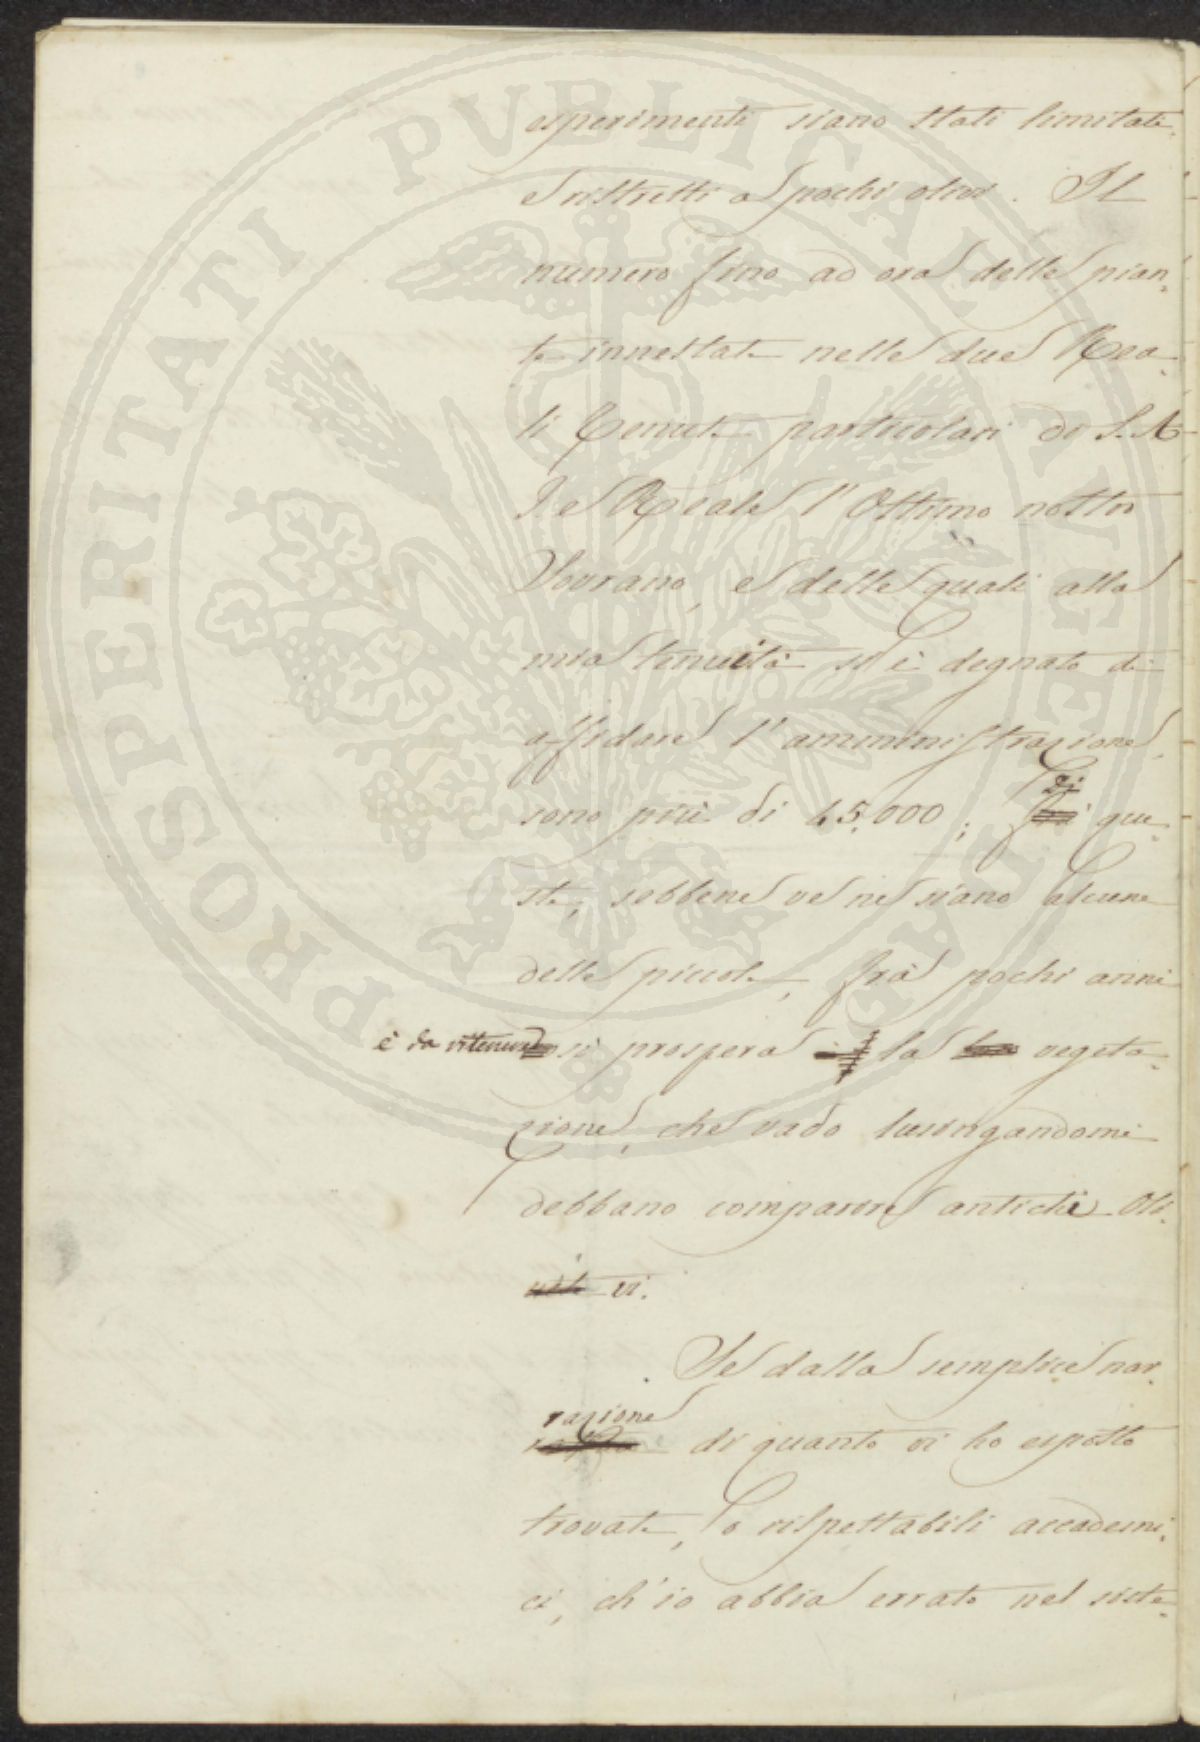 PROSPERITATI PVBLICAE AVGENDAE
esperimenti siano stati limitati
e ristretti a pochi olivi. Il
numero fino ad ora delle pian,
te innestate nelle due Rea,
li Tenute particolari di S. A
I. e Reale l'Ottimo nostro
Sovrano, e delle quali alla
mia tenuità si è degnato di
affidare l'amministrazione
sono più di 45,000; di que,
ste, sebbene ve ne siano alcune
delle piccole, frà pochi anni
è da ritenersi prospera la vegeta,
zione, che vado lusingandomi
debbano comparire antichi Oli,
vi.
Se dalla semplice nar,
razione
di quanto vi ho esposto
trovate, o rispettabili accademi,
ci, ch'io abbia errato nel siste,